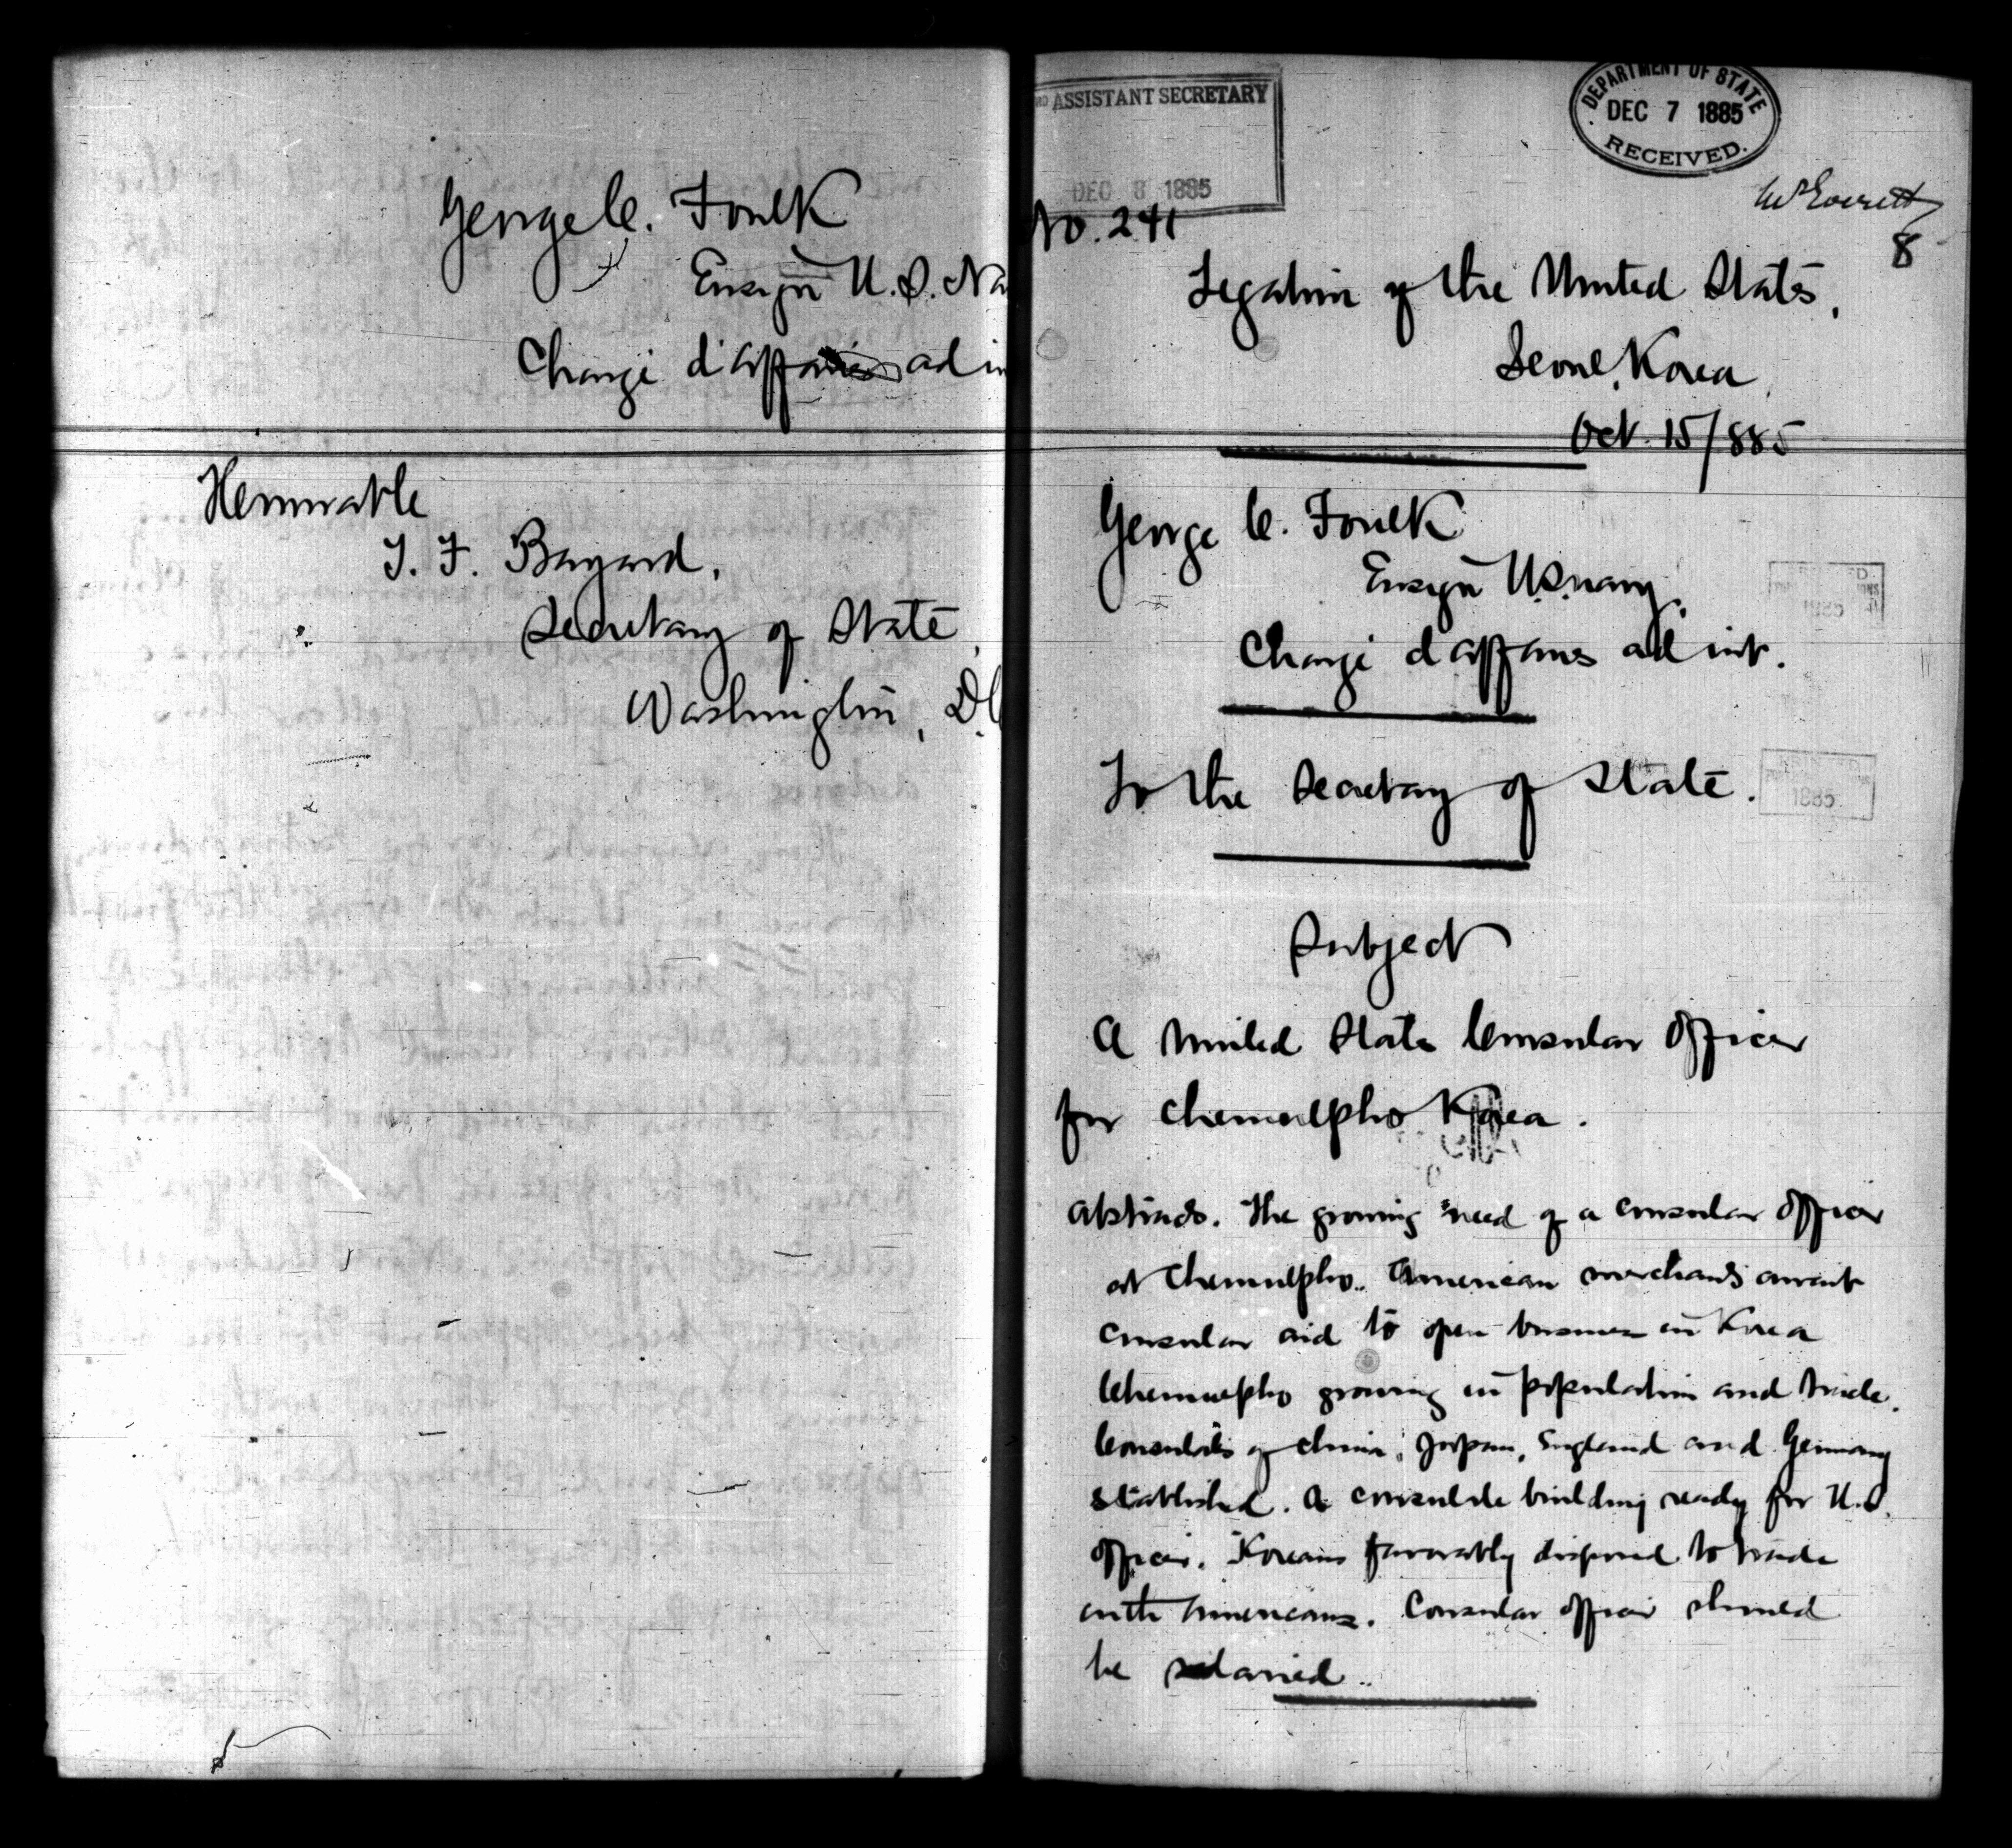 George C. Foulk
Ensign U.S. Na
Chargé d'affaires ad in
Honorable
T. F. Bayard,
Secretary of State,
Washington, D.C
ASSISTANT SECRETARY
DEC 8 1885
DEPARTMENT OF STATE
DEC 7 1885
RECEIVED.
Mr Everett
8
No. 241
Legation of the United States,
Seoul, Korea,
Oct. 15/885
George C. Foulk
Ensign U.S. Navy,
Chargé d'affaires ad int.
To the Secretary of State.
1885
Subject
A United States Consular Officer
for Chemulpho Korea.
Abstract. The growing need of a consular officer
at Chemulpho. American merchants await
consular aid to open business in Korea
Chemulpho growing in population and trade.
Consulates of China, Japan, England and Germany
established. A consulate building ready for U.S.
officer. Koreans favorably disposed to trade
with Americans. Consular officer should
be salaried.